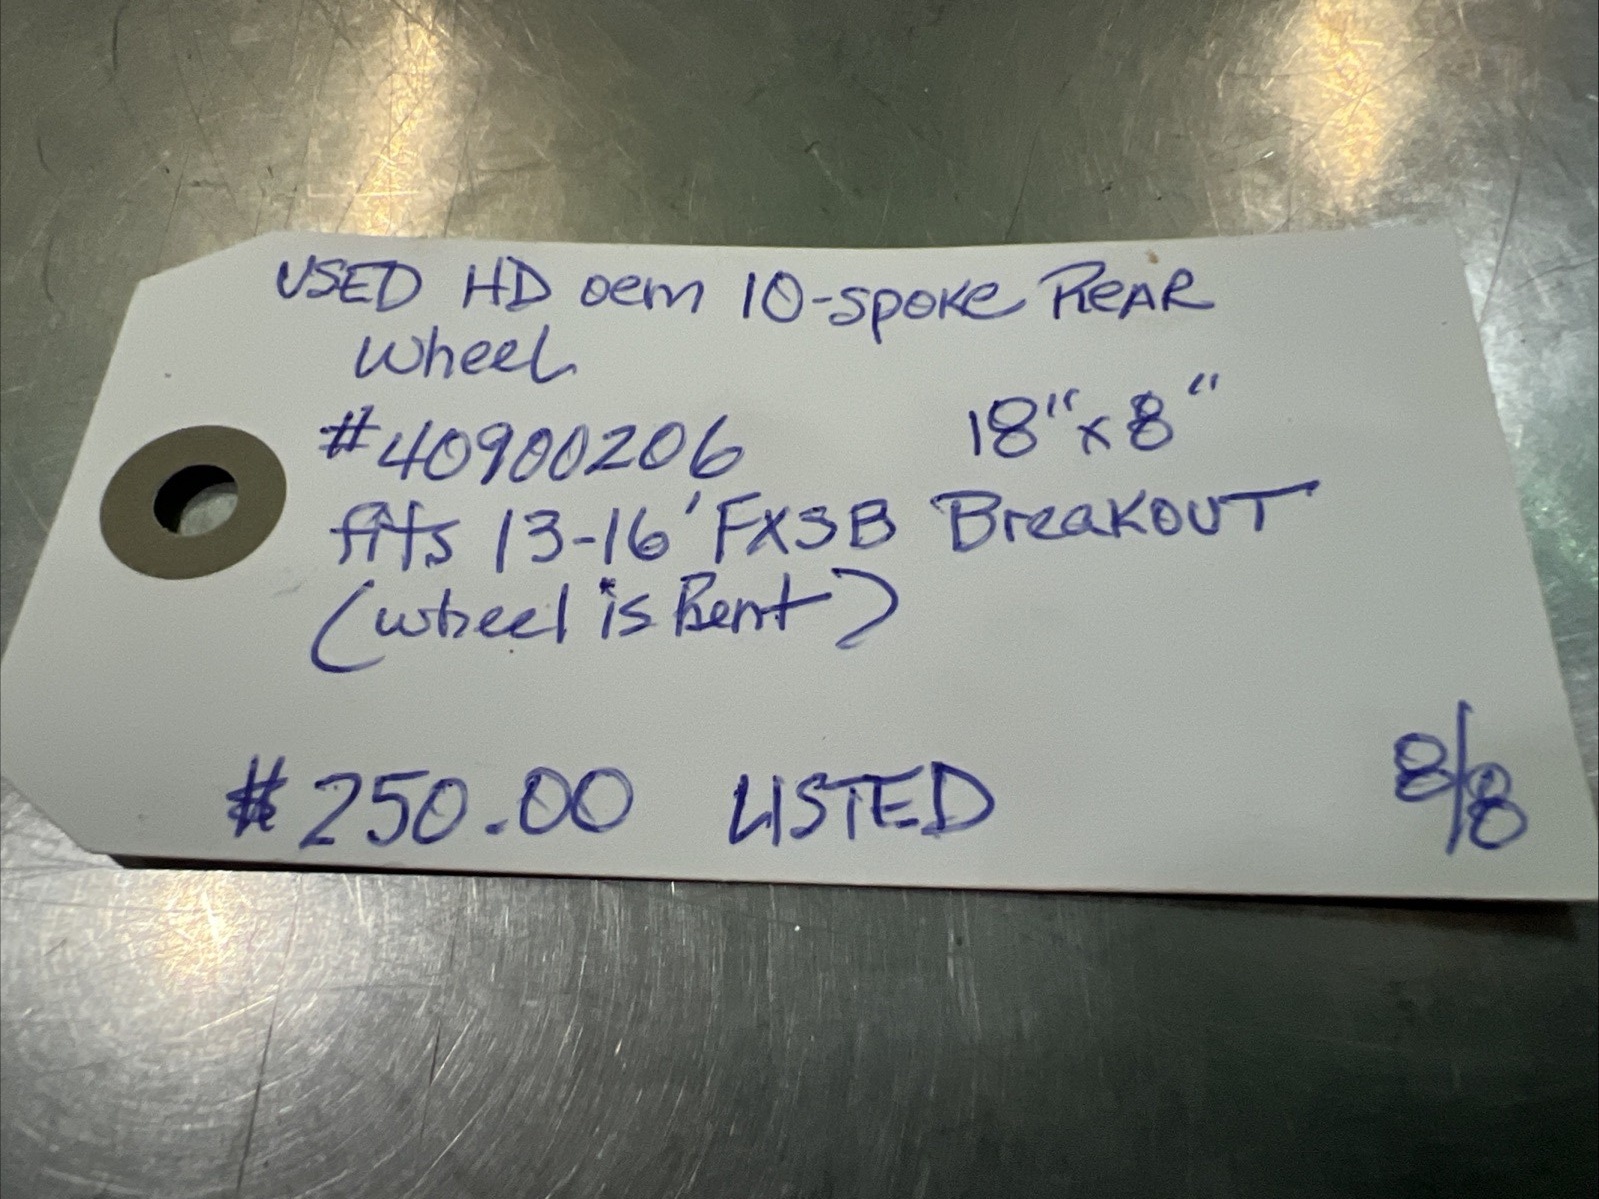 USED HD oem 10-spoke REAR
wheel
#40900206 18"x8"
fits 13-16' FXSB BreakOUT
(wheel is Bent)
$250.00 LISTED 8/8